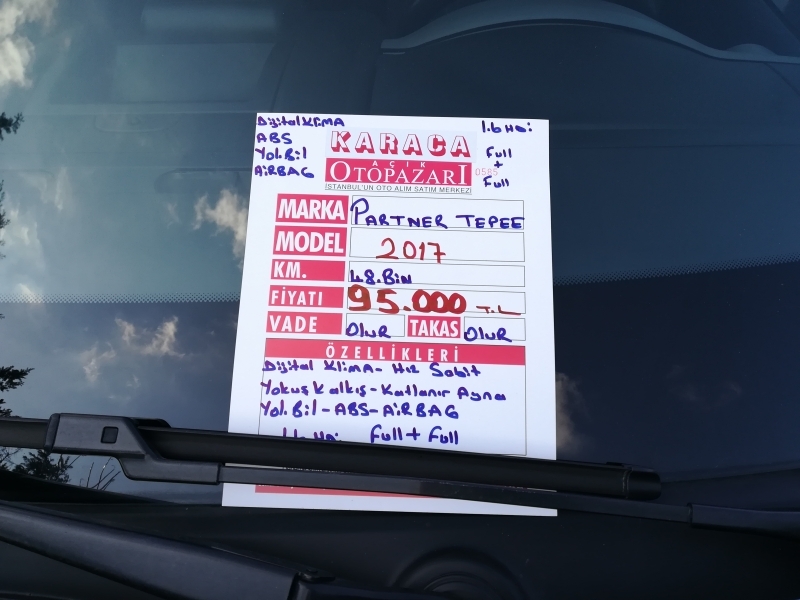 Dijital KLİMA
ABS
Yol.Bil
AİRBAG
KARACA
AÇIK
OTOPAZARI
İSTANBUL'UN OTO ALIM SATIM MERKEZİ
1.6 HDi
Full
+
Full
0585
MARKA PARTNER TEPEE
MODEL 2017
KM. 48.BİN
FİYATI 95.000 T.L
VADE OLUR TAKAS OLUR
ÖZELLİKLERİ
Dijital Klima - Hız Sabit
Yokuş Kalkış - Katlanır Ayna
Yol.Bil - ABS - AİRBAG
1.6 HDi Full + Full